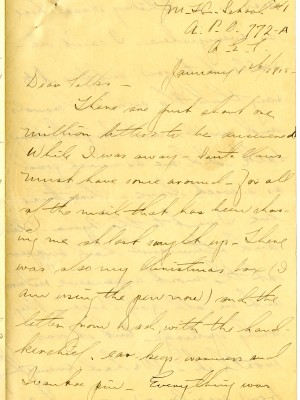 M.T.C. School #1
A. P. O. 772-A
A. E. F.
January 1st, 1915-
Dear Folks -
There are just about one
million letters to be answered
While I was away - Santa Claus
must have come around - For all
of the mail that has been chas-
ing me at last caught up - There
was also my Christmas box (I
am using the pen now) and the
letter from with the hand-
kerchief, ear keep-warmers and
Ivanhoe pin - Everything was